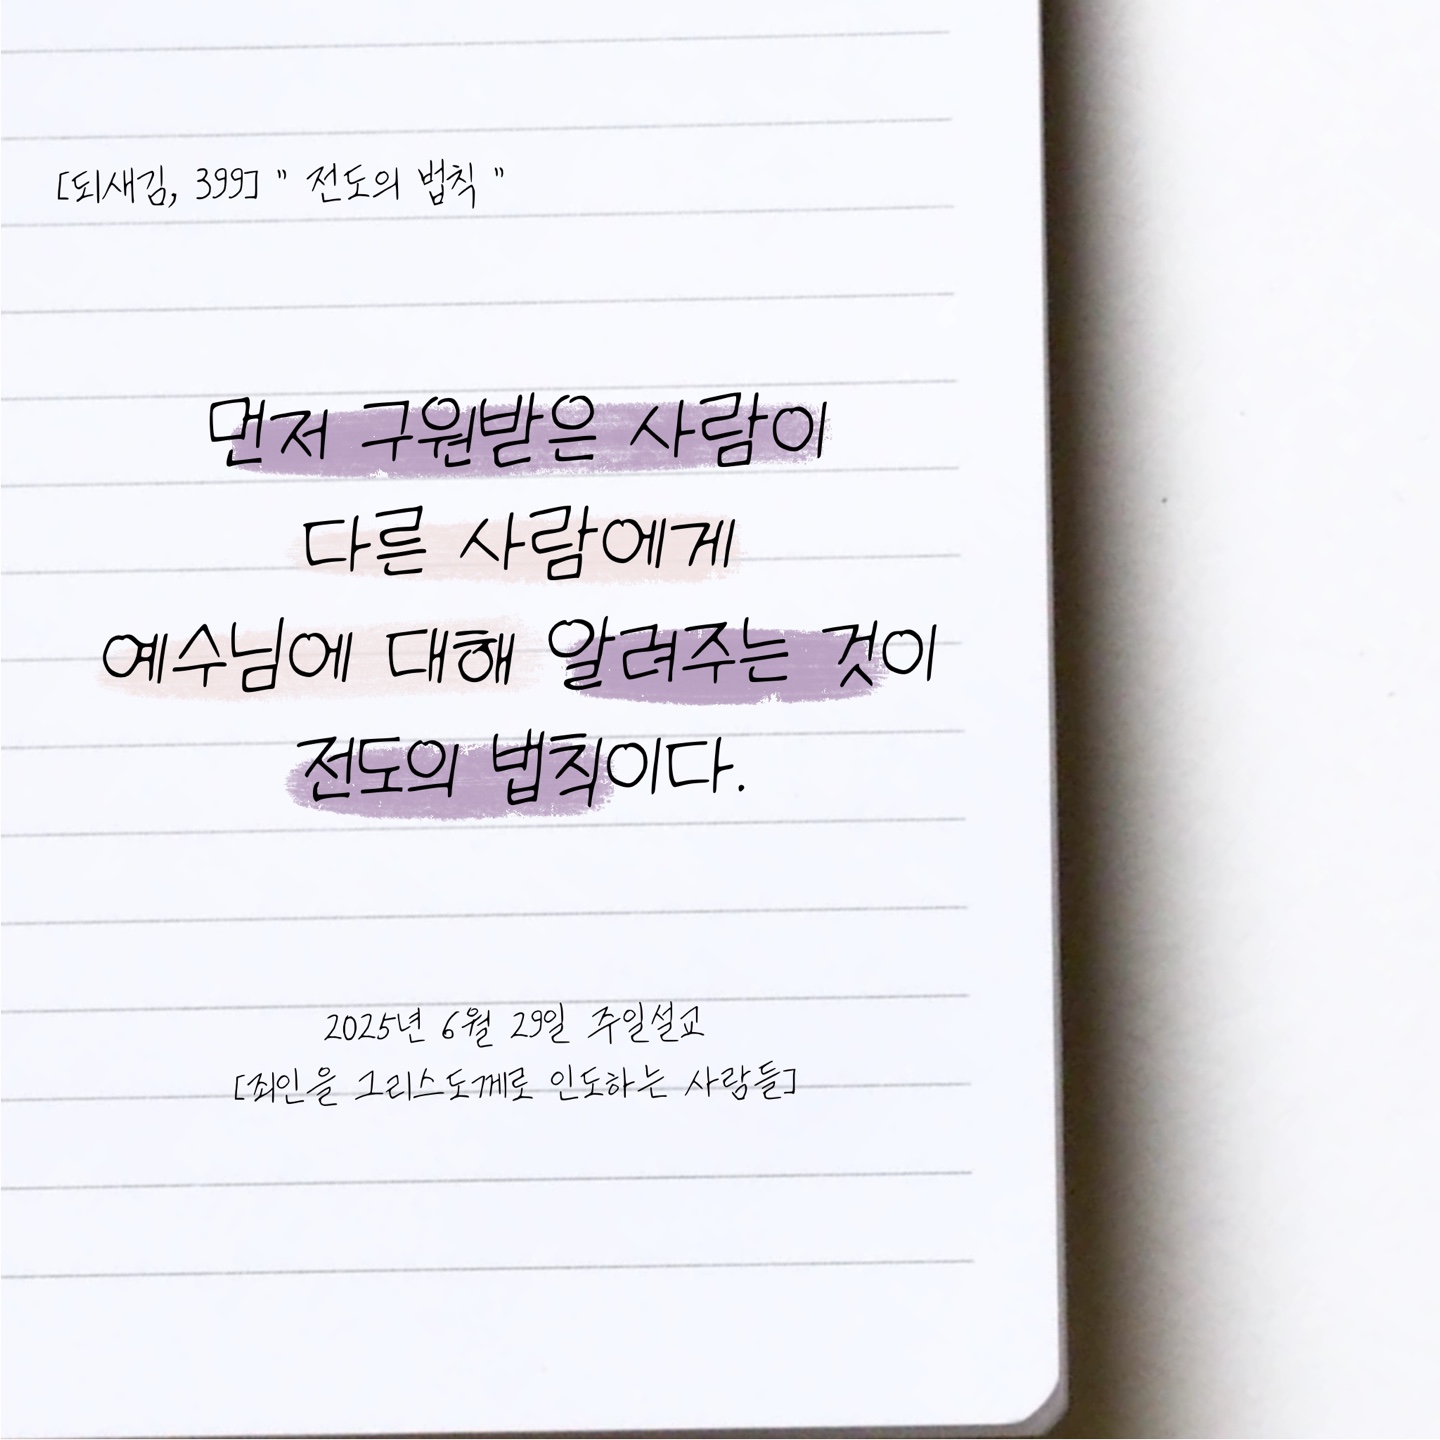 [되새김, 399] " 전도의 법칙 "
먼저 구원받은 사람이
다른 사람에게
예수님에 대해 알려주는 것이
전도의 법칙이다.
2025년 6월 29일 주일설교
[죄인을 그리스도께로 인도하는 사람들]